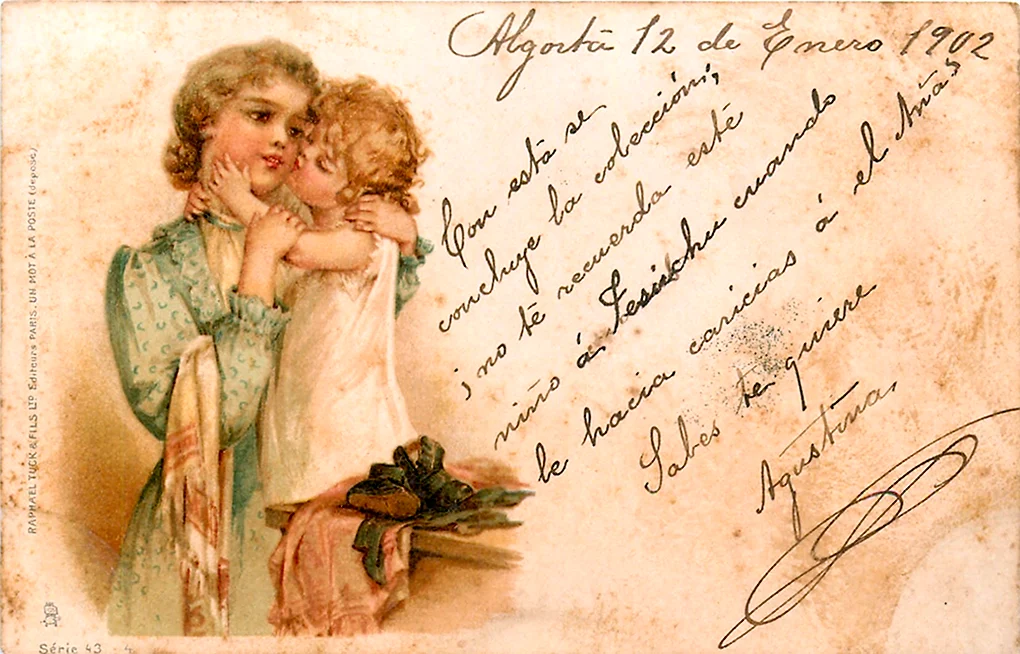 Algortā 12 de Enero 1902
Con está se
concluye la colección;
¡no té recuerda esté
niño á Jesüchu cuando
le hacia caricias á el Amá?
Sabes te quiere
Agustina,
RAPHAEL TUCK & FILS LTD Editeurs PARIS. UN MOT À LA POSTE (déposé)
Série 43 4